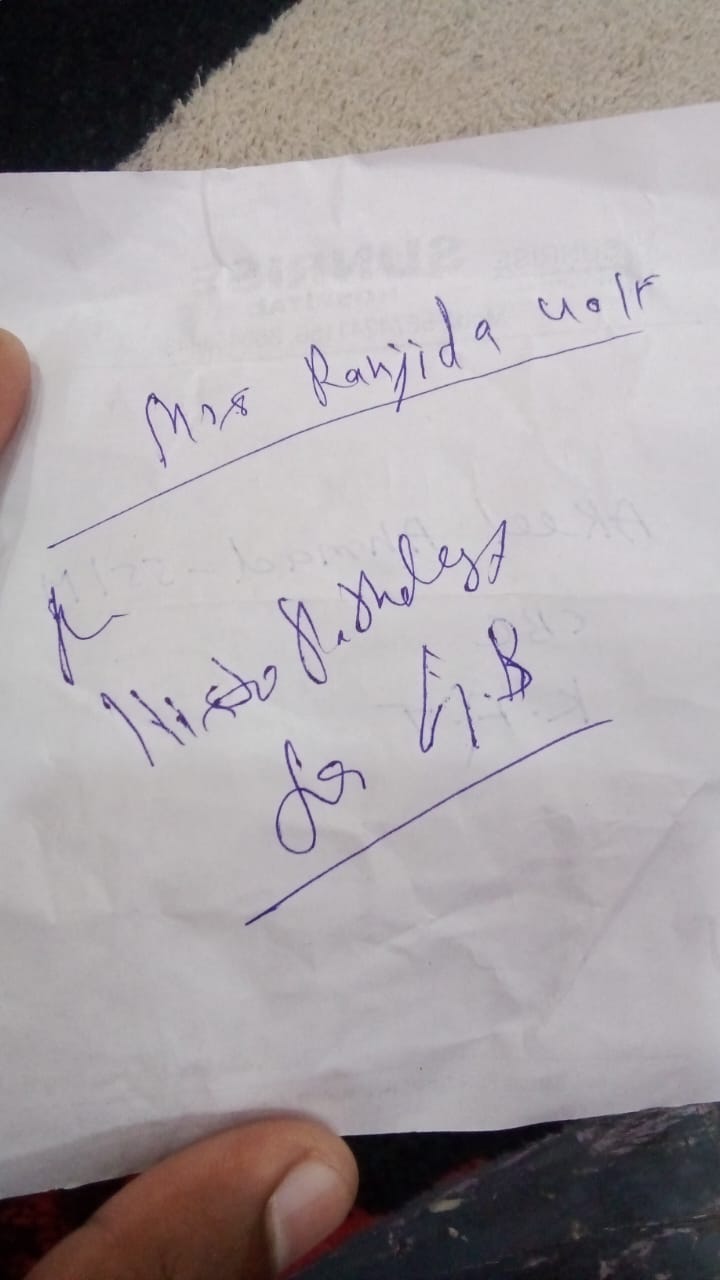 Mrs Ranjida 40/F
Histo Pathology
for G.B